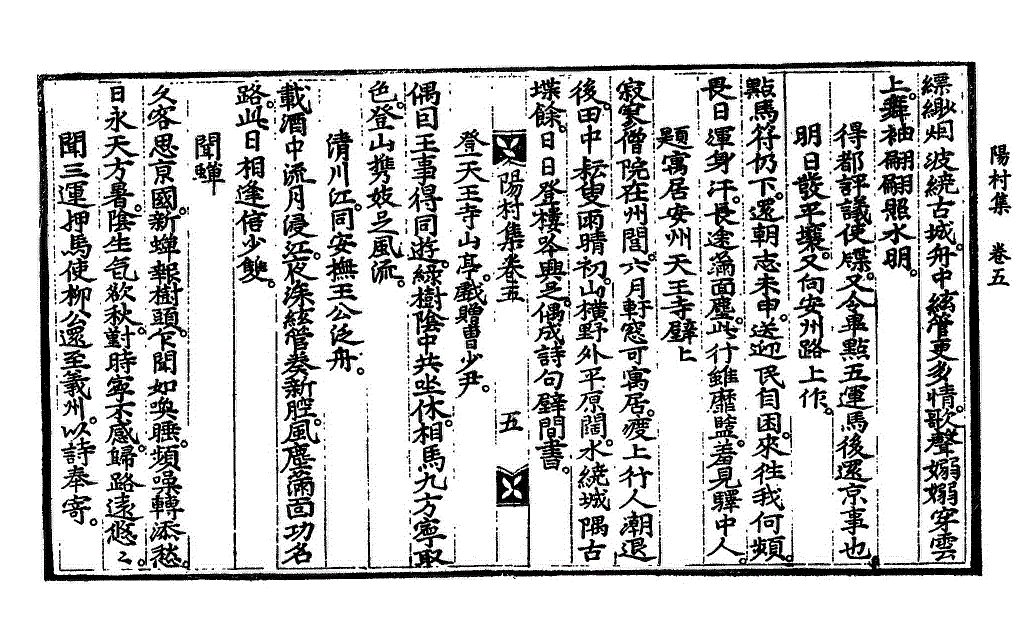 陽村集 卷五
縹緲烟波繞古城。舟中絃管更多情。歌聲嫋嫋穿雲
上。舞袖翩翩照水明。
得都評議使牒。又令畢點五運馬後還京事也
明日發平壤。又向安州路上作。
點馬符仍下。還朝志未申。送迎民自困。來往我何頻。
畏日渾身汗。長途滿面塵。此行雖靡盬。羞見驛中人
題寓居安州天王寺壁上
寂寞僧院在州閭。六月軒窓可寓居。渡上行人潮退
後。田中耘叟雨晴初。山橫野外平原闊。水繞城隅古
堞餘。日日登樓吟興足。偶成詩句壁間書。
陽村集卷五 五
登天王寺山亭。戱贈曹少尹。
偶因王事得同遊。綠樹陰中共坐休。相馬九方寧取
色。登山携妓足風流。
清川江。同安撫王公泛舟。
載酒中流月浸江。夜深絃管奏新腔。風塵滿面功名
路。此日相逢信少雙。
聞蟬
久客思京國。新蟬報樹頭。乍聞如喚睡。頻噪轉添愁。
日永天方暑。陰生氣欲秋。對時寧不感。歸路遠悠悠。
聞三運押馬使柳公還至義州。以詩奉寄。